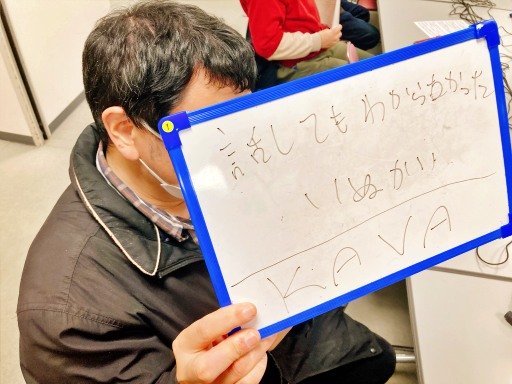 話してもわからなかった
いいぬかい
KAVA